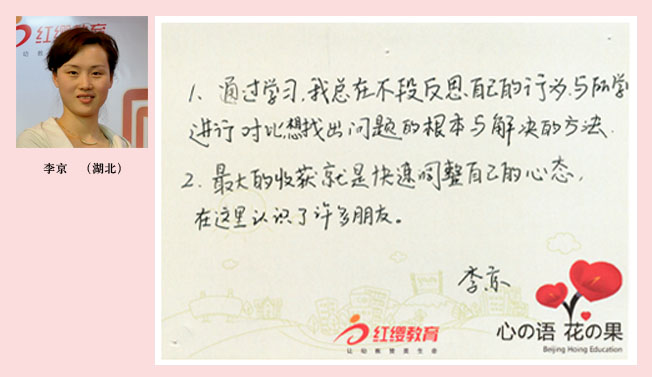 红缨教育
李京 （湖北）
1、通过学习，我总在不段反思自己的行为，与所学
进行对比，想找出问题的根本与解决的方法.
2、最大的收获就是快速调整自己的心态，
在这里认识了许多朋友。
李京
红缨教育
让幼教接近生命
心の语 花の果
Beijing Hoing Education